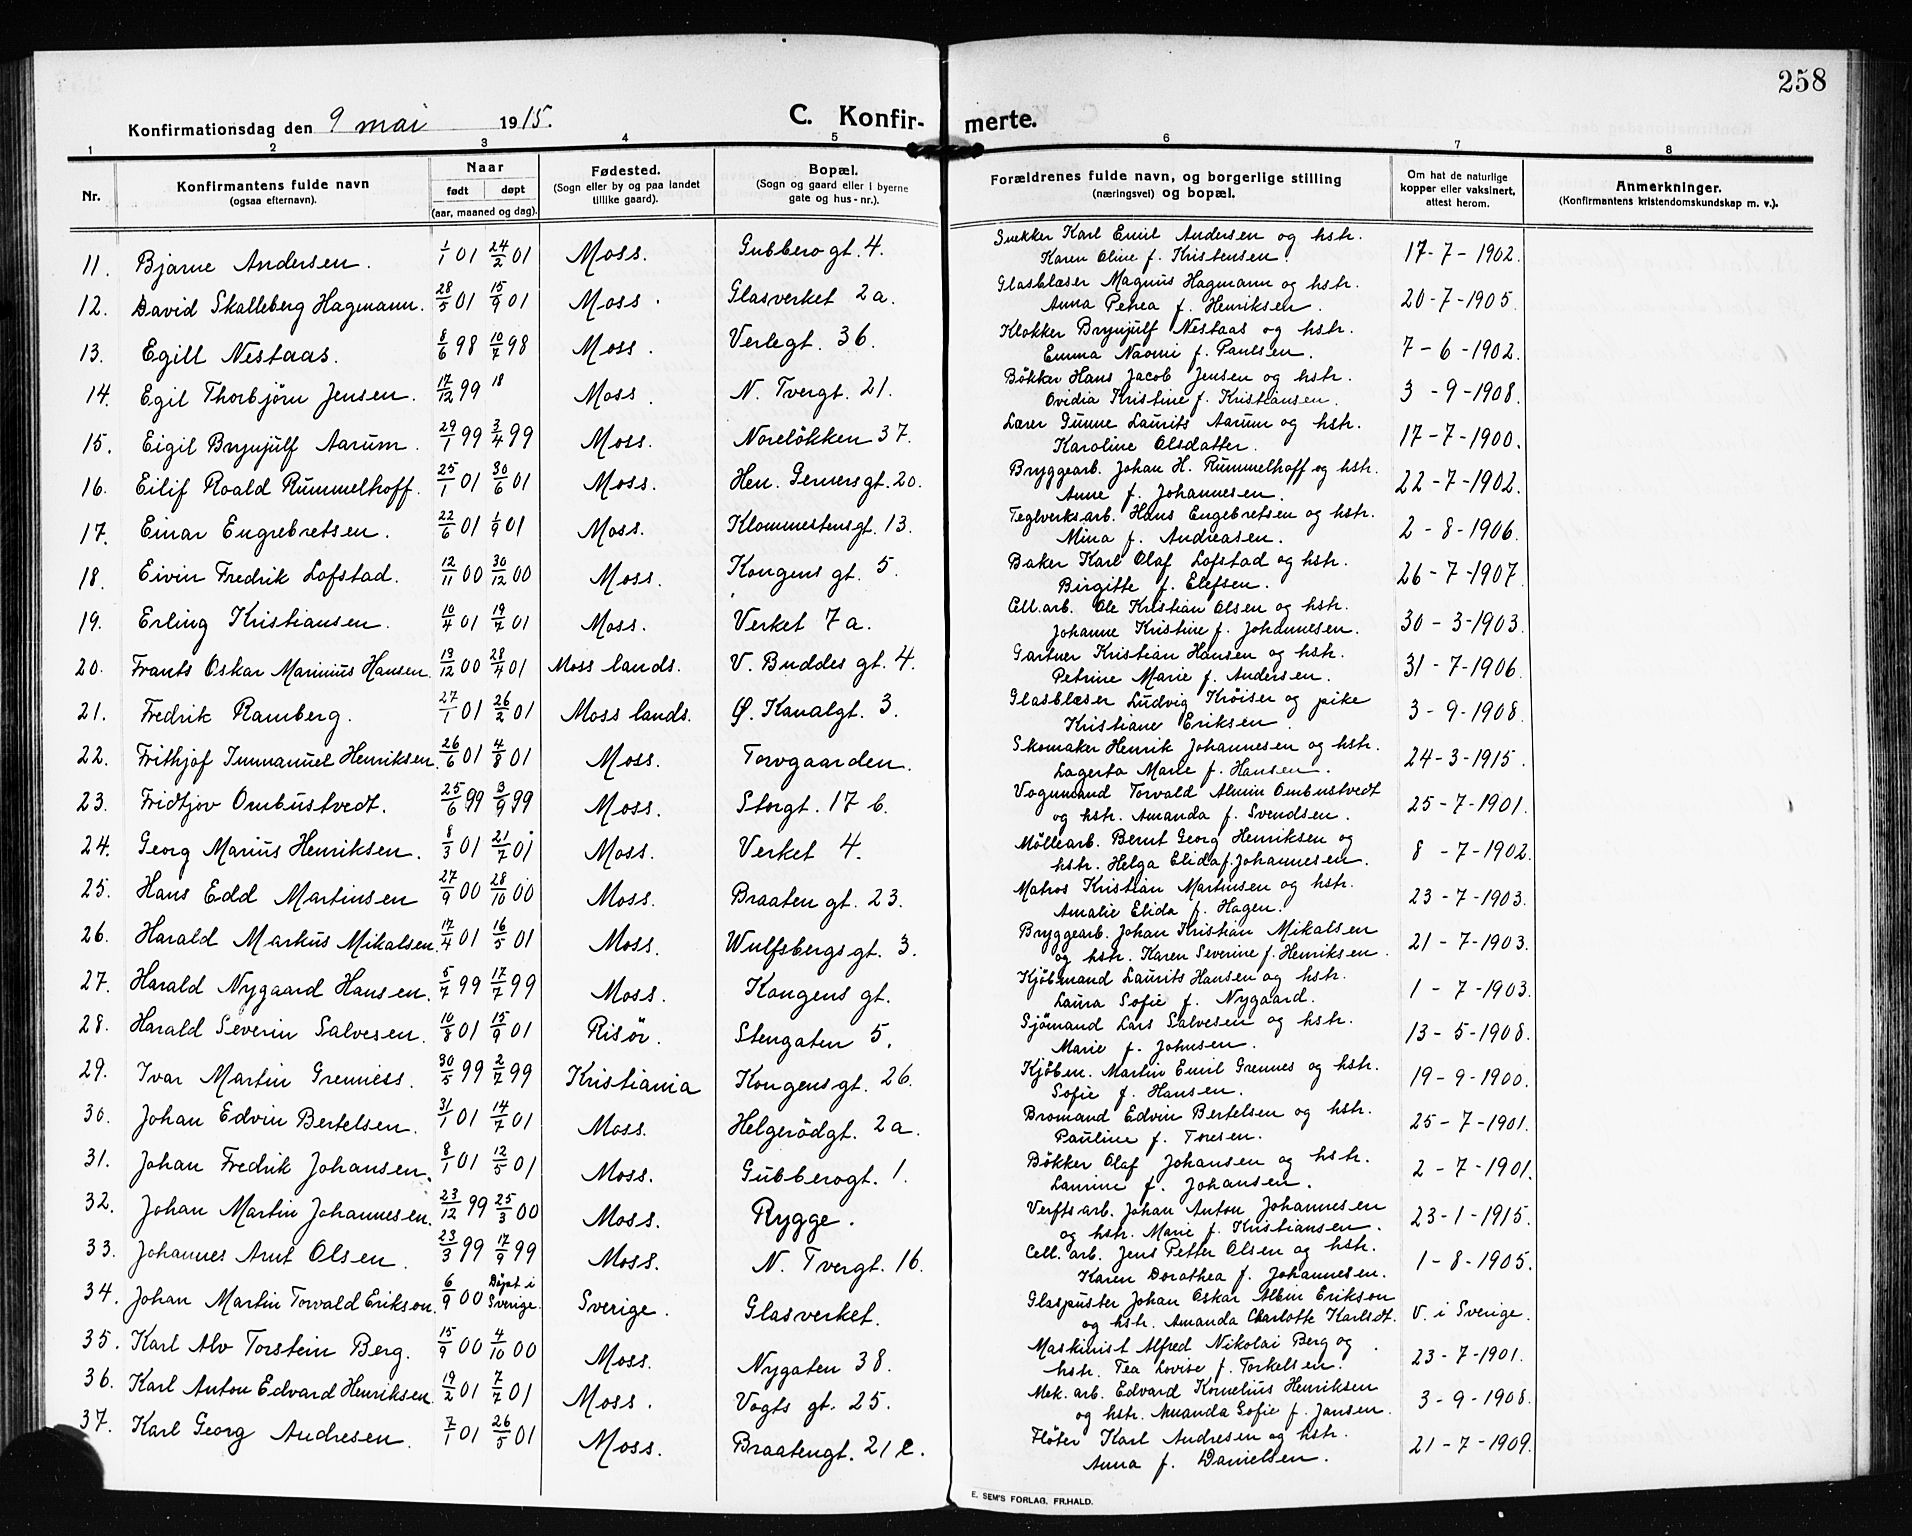 258
Konfirmationsdag den 9 mai 1915.
C. Konfirmerte.
1 2 3 4 5 6 7 8
Nr.
Konfirmantens fulde navn
(ogsaa efternavn).
Naar
født døpt
(aar, maaned og dag).
Fødested.
(Sogn eller by og paa landet
tillike gaard).
Bopæl.
(Sogn og gaard eller i byerne
gate og hus-nr.).
Forældrenes fulde navn, og borgerlige stilling
(næringsvei) og bopæl.
Om hat de naturlige
kopper eller vaksinert,
attest herom.
Anmerkninger.
(Konfirmantens kristendomskundskap m. v.).
11. Bjarne Andersen. 1/1 01 24/2 01 Moss. Gubberogt. 4. Snekker Karl Emil Andersen og hstr. Karen Oline f. Kristensen. 17-7-1902.
12. David Skalleberg Hagmann. 28/5 01 15/9 01 Moss. Glasverket 2a. Glasblæser Magnus Hagmann og hstr. Anna Petrea f. Henriksen. 20-7-1905.
13. Egill Nestaas. 8/6 98 10/7 98 Moss. Verlegt. 36. Klokker Brynjulf Nestaas og hstr. Emma Naomi f. Paulsen. 7-6-1902.
14. Egil Thorbjörn Jensen. 17/12 99 18 Moss. N. Tvergt. 21. Bökker Hans Jacob Jensen og hstr. Ovidia Kristine f. Kristiansen. 3-9-1908.
15. Eigil Brynjulf Aarum. 29/1 99 3/4 99 Moss. Norelökken 37. Lærer Gunne Laurits Aarum og hstr. Karoline Olsdatter. 17-7-1900.
16. Eilif Roald Rummelhoff. 25/1 01 30/6 01 Moss. Hen. Gernersgt. 20. Bryggearb. Johan H. Rummelhoff og hstr. Anne f. Johannesen. 22-7-1902.
17. Einar Engebretsen. 22/6 01 1/9 01 Moss. Klommestensgt. 13. Teglverksarb. Hans Engebretsen og hstr. Mina f. Andreasen. 2-8-1906.
18. Eivin Fredrik Lofstad. 12/11 00 30/12 00 Moss. Kongens gt. 5. Baker Karl Olaf Lofstad og hstr. Birgitte f. Elefsen. 26-7-1907.
19. Erling Kristiansen. 10/4 01 19/7 01 Moss. Verket 7a. Cell.arb. Ole Kristian Olsen og hstr. Johanne Kristine f. Johannesen. 30-3-1903.
20. Frants Oskar Marinius Hansen. 13/12 00 28/4 01 Moss lands. V. Buddes gt. 4. Gartner Kristian Hansen og hstr. Petrine Marie f. Andersen. 31-7-1906.
21. Fredrik Ramberg. 27/1 01 26/2 01 Moss lands. Ø. Kanalgt. 3. Glasblæser Ludvig Kröiser og pike Kristiane Eriksen. 3-9-1908.
22. Frithjof Immanuel Henriksen. 26/6 01 4/8 01 Moss. Torvgaarden. Skomaker Henrik Johannesen og hstr. Lagerta Marie f. Hansen. 24-3-1915.
23. Fridtjov Ombustvedt. 25/6 99 3/9 99 Moss. Storgt. 17 b. Vognmand Torvald Almin Ombustvedt og hstr. Amanda f. Svendsen. 25-7-1901.
24. Georg Marius Henriksen. 8/3 01 21/7 01 Moss. Verket 4. Möllearb. Bernt Georg Henriksen og hstr. Helga Elida f. Johannesen. 8-7-1902.
25. Hans Edd Martinsen 27/9 00 28/10 00 Moss. Braaten gt. 23. Matros Kristian Martinsen og hstr. Amalie Elida f. Hagen. 23-7-1903.
26. Harald Markus Mikalsen. 17/4 01 16/5 01 Moss. Wulfsbergsgt. 3. Bryggearb. Johan Kristian Mikalsen og hstr. Karen Severine f. Henriksen. 21-7-1903.
27. Harald Nygaard Hansen. 5/7 99 17/7 99 Moss. Kongens gt. Kjöbmand Laurits Hansen og hstr. Laura Sofie f. Nygaard. 1-7-1903.
28. Harald Severin Salvesen. 10/8 01 15/9 01 Risör. Stengaten 5. Sjömand Lars Salvesen og hstr. Marie f. Johnsen. 13-5-1908.
29. Ivar Martin Grenness. 30/5 99 2/7 99 Kristiania Kongensgt. 26. Kjöbm. Martin Emil Grennes og hstr. Sofie f. Hansen. 19-9-1900.
30. Johan Edvin Bertelsen. 31/1 01 14/7 01 Moss. Helgerödgt. 2a. Bromand Edvin Bertelsen og hstr. Pauline f. Toresen. 25-7-1901.
31. Johan Fredrik Johansen. 8/1 01 12/5 01 Moss. Gubberogt. 1. Bökker Olaf Johansen og hstr. Laurine f. Johansen. 2-7-1901.
32. Johan Martin Johannesen. 23/12 99 25/3 00 Moss. Rygge. Verftsarb. Johan Anton Johannesen og hstr. Marie f. Kristiansen. 23-1-1915.
33. Johannes Arnt Olsen. 23/3 99 17/9 99 Moss. N. Tvergt. 16. Cell. arb. Jens Petter Olsen og hstr. Karen Dorothea f. Johannesen. 1-8-1905.
34. Johan Martin Torvald Erikson. 6/9 00 Döpt i Sverige. Sverige. Glasverket. Glaspuster Johan Oskar Albin Erikson og hstr. Amanda Charlotte Karlsdt. V. i Sverige.
35. Karl Alv Torstein Berg. 15/9 00 4/10 00 Moss. Nygaten 38. Maskinist Alfred Nikolai Berg og hstr. Tea Lovise f. Torkelsen. 23-7-1901.
36. Karl Anton Edvard Henriksen. 19/2 01 7/7 01 Moss. Vogts gt. 25. Mek. arb. Edvard Kornelius Henriksen og hstr. Amanda Sofie f. Jansen. 3-9-1908.
37. Karl Georg Andresen. 7/1 01 26/5 01 Moss. Braatengt. 21 c. Flöter Karl Andresen og hstr. Anna f. Danielsen. 21-7-1909.
E. SEM'S FORLAG, FR.HALD.